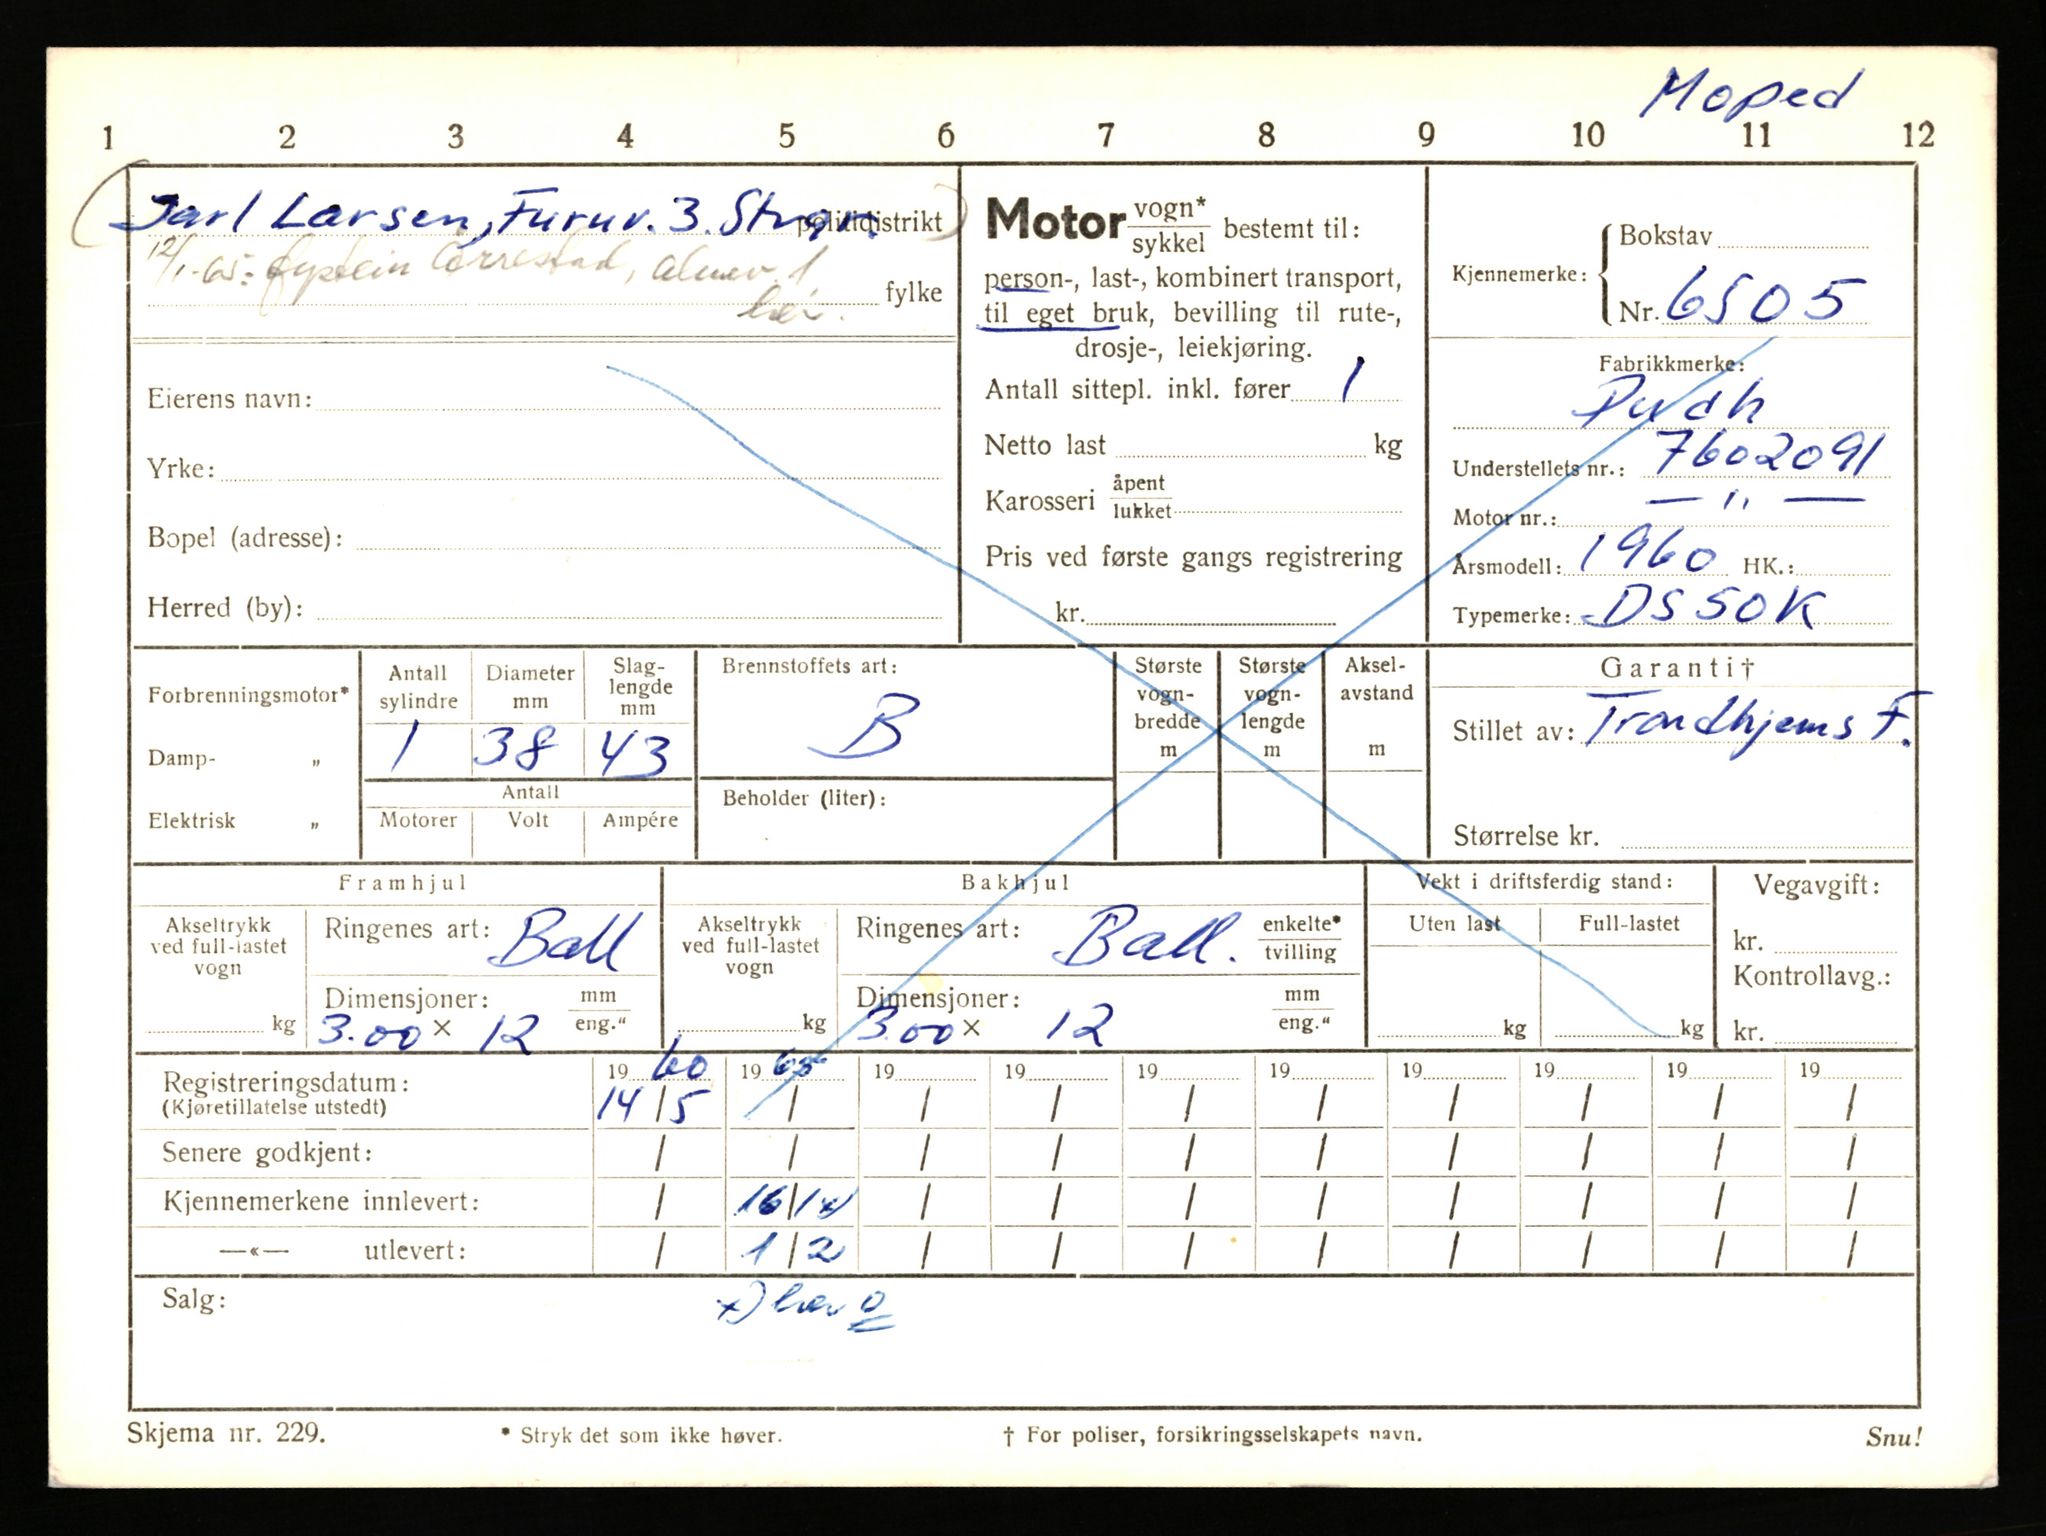 Moped
1 2 3 4 5 6 7 8 9 10 11 12
(Jarl Larsen, Furuv. 3. Stvgr.)
politidistrikt
12/1-65: Øystein Orrestad, Almev. 1
her.
fylke
Eierens navn:
Yrke:
Bopel (adresse):
Herred (by):
Motor vogn*
sykkel bestemt til:
person-, last-, kombinert transport,
til eget bruk, bevilling til rute-,
drosje-, leiekjøring.
Antall sittepl. inkl. fører 1
Netto last kg
Karosseri åpent
lukket
Pris ved første gangs registrering
kr.
Kjennemerke: Bokstav
Nr. 6505
Fabrikkmerke:
Puch
Understellets nr.: 7602091
Motor nr.: — " —
Årsmodell: 1960 HK.:
Typemerke: DS 50K
Forbrenningsmotor*
Damp- „
Elektrisk „
Antall sylindre Diameter mm Slag-lengde mm
1 38 43
Antall
Motorer Volt Ampére
Brennstoffets art:
B
Beholder (liter):
Største vogn-bredde m
Største vogn-lengde m
Aksel-avstand m
Garanti†
Stillet av: Trondhjems F.
Størrelse kr.
Framhjul
Akseltrykk ved full-lastet vogn
kg
Ringenes art: Ball
Dimensjoner: mm
eng."
3.00 × 12
Bakhjul
Akseltrykk ved full-lastet vogn
kg
Ringenes art: Ball. enkelte*
tvilling
Dimensjoner: mm
eng."
3.00 × 12
Vekt i driftsferdig stand:
Uten last Full-lastet
kg kg
Vegavgift:
kr.
Kontrollavg.:
kr.
19 60 19 65 19 19 19 19 19 19 19 19
Registreringsdatum: 14/5 / / / / / / / / /
(Kjøretillatelse utstedt)
Senere godkjent: / / / / / / / / / /
Kjennemerkene innlevert: / 16/1 x) / / / / / / / /
—«— utlevert: / 1/2 / / / / / / / /
Salg: x) her
Skjema nr. 229.
* Stryk det som ikke høver.
† For poliser, forsikringsselskapets navn.
Snu!